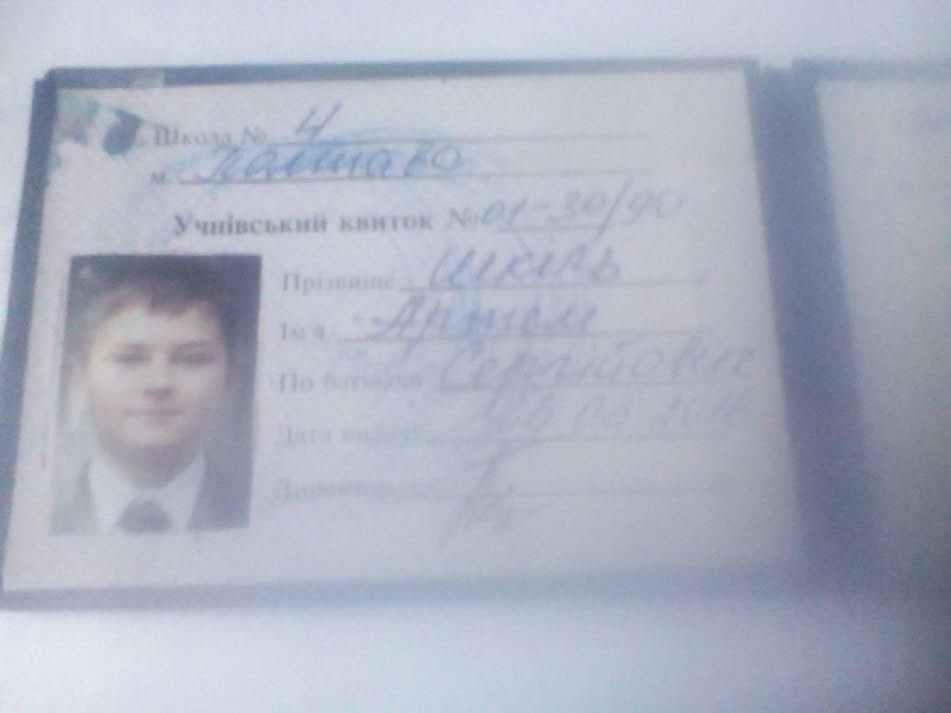 Школа № 4
м.
Учнівський квиток № 01-30/90
Прізвище Шкіль
Ім'я Артем
По батькові Сергійович
Дата видачі
Директор